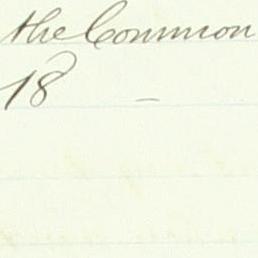 the Common
18 —